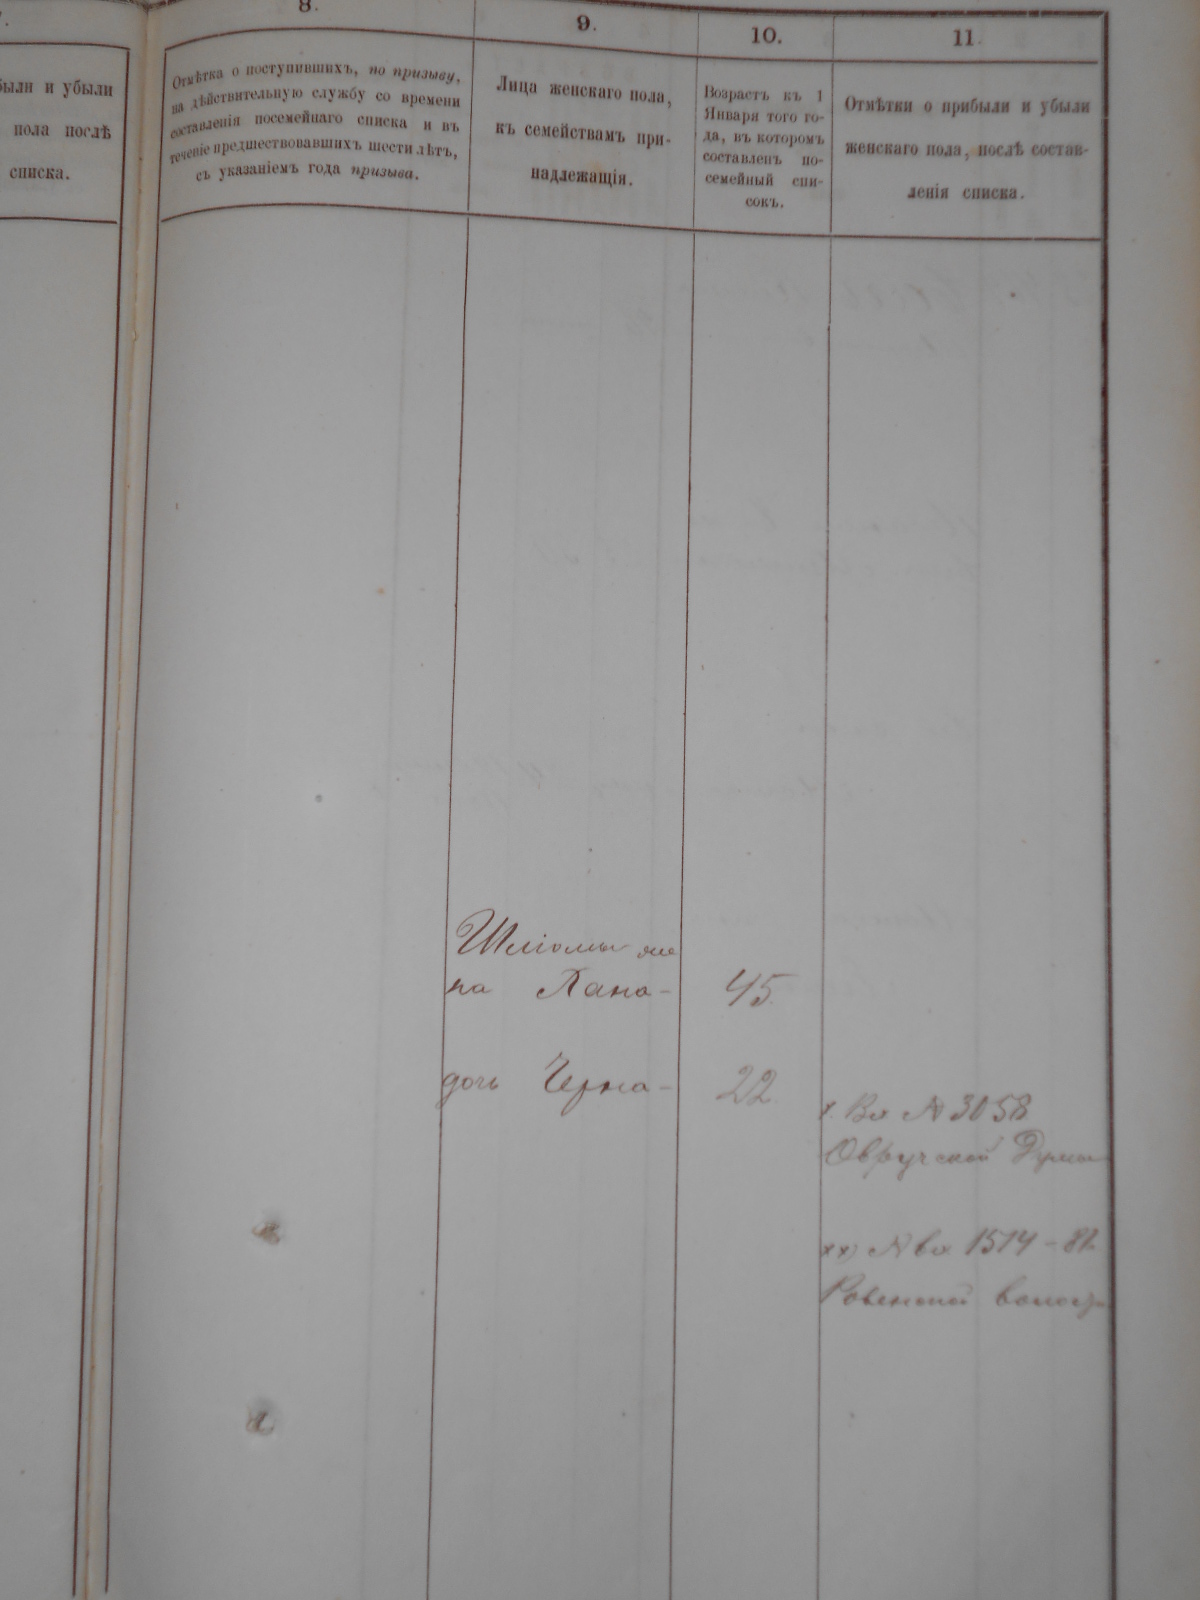 8.
9.
10.
11.
были и убыли
пола послѣ
списка.
Отмѣтка о поступившихъ, по призыву,
на дѣйствительную службу со времени
составленія посемейнаго списка и въ
теченіе предшествовавшихъ шести лѣтъ,
съ указаніемъ года призыва.
Лица женскаго пола,
къ семействамъ при-
надлежащія.
Возрастъ къ 1
Января того го-
да, въ которомъ
составленъ по-
семейный спи-
сокъ.
Отмѣтки о прибыли и убыли
женскаго пола, послѣ состав-
ленія списка.
Шліомы же
на Хана- 45
дочь Черна- 22
х. Вх № 3058
Овручской Думы
хх) № вх 1514 - 82
Ровенской волост